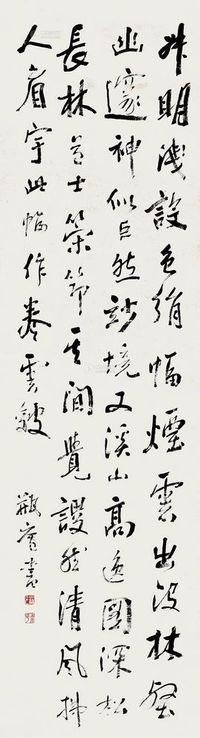 叔明淺設色絹幅煙雲出沒林壑
幽邃神似巨然妙境又溪山高逸圖深松
長林士策筇其間覺謖然清風拂
人眉宇此幅作卷雲皴
瓶齋書